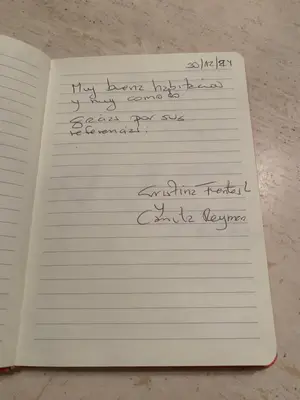 30/12/24
Muy buena habitación
y muy como
Gracias por sus
referencias.
Cristina
y
Camila Reymon